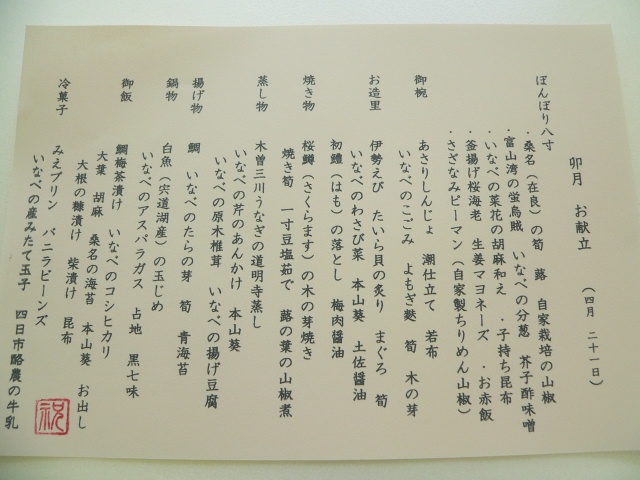 卯月　お献立　（四月　二十一日）
ぼんぼり八寸
・桑名（在良）の筍　蕗　自家栽培の山椒
・富山湾の蛍烏賊　いなべの分葱　芥子酢味噌
・いなべの菜花の胡麻和え　・子持ち昆布
・釜揚げ桜海老　生姜マヨネーズ　・お赤飯
・さざなみピーマン（自家製ちりめん山椒）
御椀
あさりしんじょ　潮仕立て　若布
いなべのこごみ　よもぎ麩　筍　木の芽
お造里
伊勢えび　たいら貝の炙り　まぐろ　筍
いなべのわさび菜　本山葵　土佐醤油
初鱧（はも）の落とし　梅肉醤油
焼き物
桜鱒（さくらます）の木の芽焼き
焼き筍　一寸豆塩茹で　蕗の葉の山椒煮
蒸し物
木曽三川うなぎの道明寺蒸し
いなべの芹のあんかけ　本山葵
揚げ物
いなべの原木椎茸　いなべの揚げ豆腐
鯛　いなべのたらの芽　筍　青海苔
鍋物
白魚（宍道湖産）の玉じめ
いなべのアスパラガス　占地　黒七味
御飯
鯛梅茶漬け　いなべのコシヒカリ
大葉　胡麻　桑名の海苔　本山葵　お出し
大根の糠漬け　柴漬け　昆布
冷菓子
みえプリン　バニラビーンズ
いなべの産みたて玉子　四日市酪農の牛乳
祝